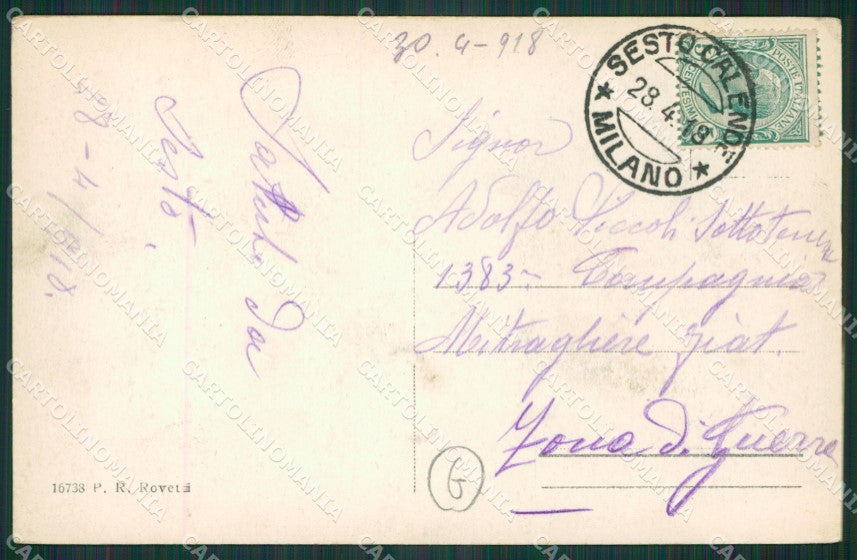 30.4-918
SESTO CALENDE
28.4.18
MILANO
POSTE ITALIANE
Signor
Adolfo Piccoli Sottotenen
1383a Compagnia
Mitragliere Fiat.
Zona di Guerra
G
Saluti da
Sesto
28-4/918.
16738 P. R. Roveta
CARTOLINOMANIA